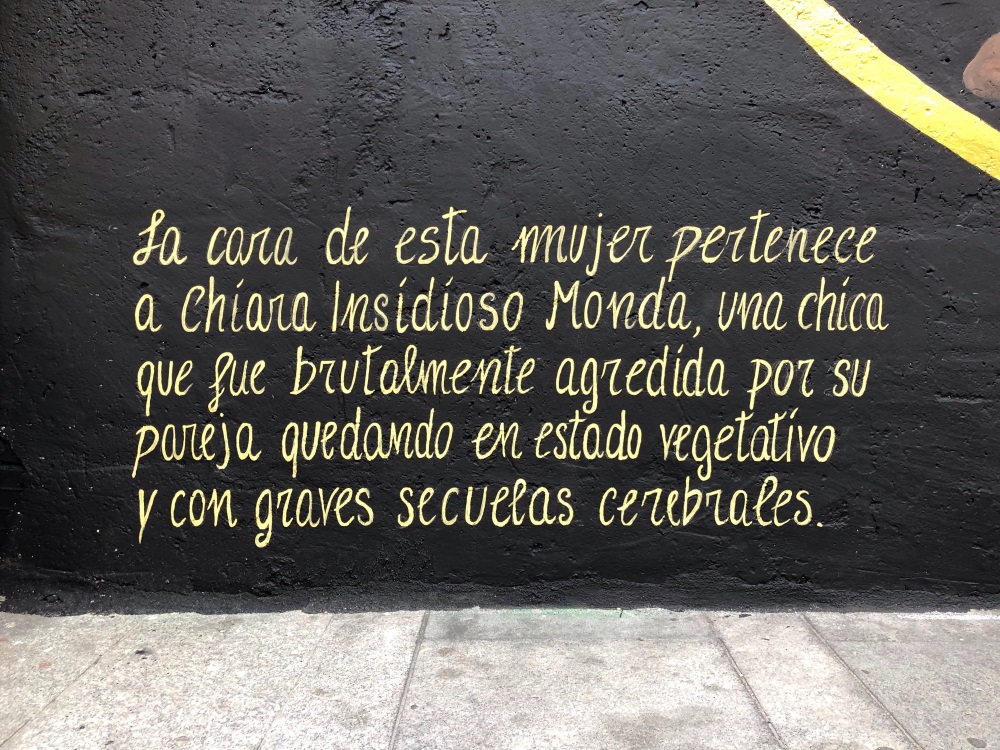 La cara de esta mujer pertenece
a Chiara Insidioso Monda, una chica
que fue brutalmente agredida por su
pareja quedando en estado vegetativo
y con graves secuelas cerebrales.